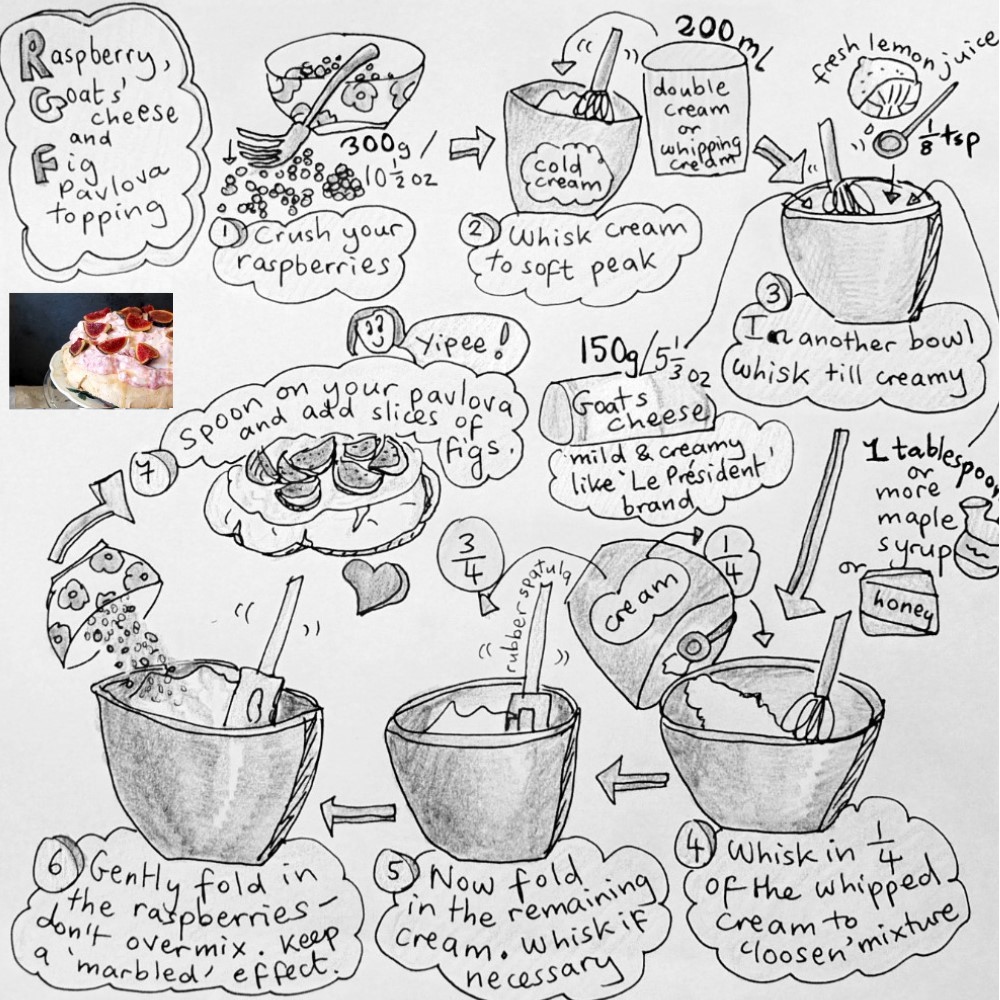 Raspberry,
Goats'
cheese
and
Fig
pavlova
topping
300g /
10 1/2 oz
1 Crush your
raspberries
200 mL
double
cream
or
whipping
cream
cold
cream
2 Whisk cream
to soft peak
fresh lemon juice
1/8 tsp
3
In another bowl
whisk till creamy
150g/5 1/3 oz
Goats
cheese
mild & creamy
like 'Le Président'
brand
1 tablespoon
or
more
maple
syrup
or
honey
cream
1/4
4 Whisk in 1/4
of the whipped
cream to
'loosen' mixture
3/4
rubber spatula
5 Now fold
in the remaining
cream. Whisk if
necessary
6 Gently fold in
the raspberries -
don't overmix. Keep
a 'marbled' effect.
7
Spoon on your pavlova
and add slices of
figs.
Yipee!